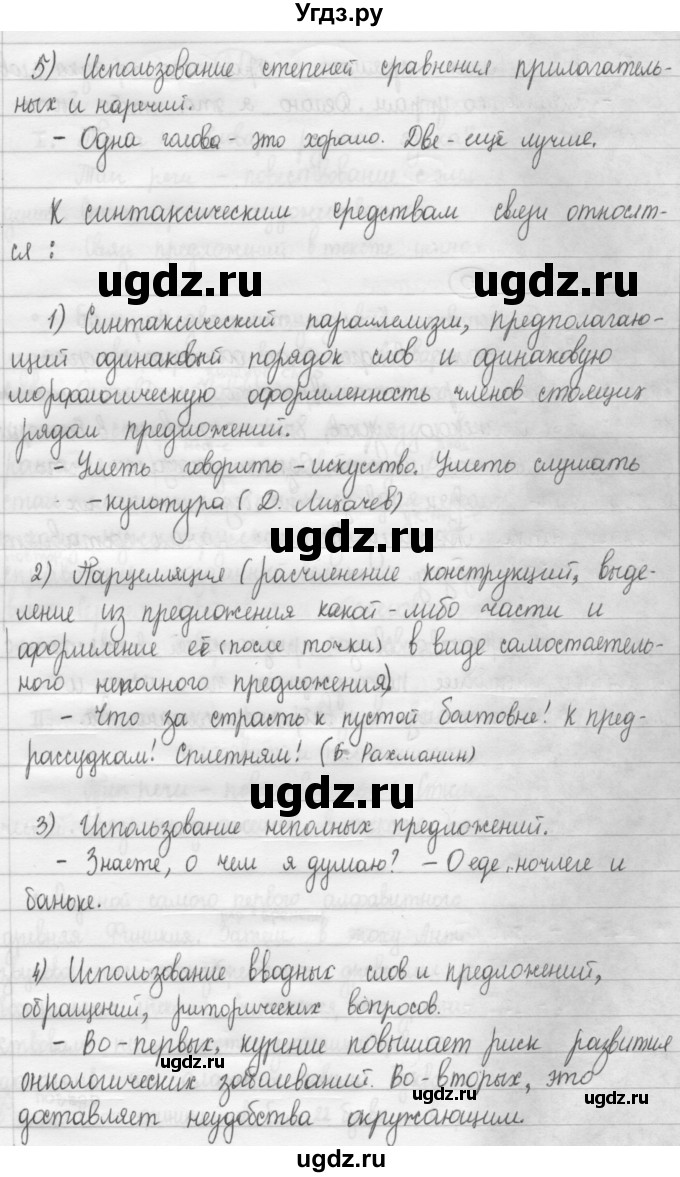 Угдз.ру
5) Использование степеней сравнения прилагатель-
ных и наречий.
- Одна голова - это хорошо. Две - ещё лучше.
К синтаксическим средствам связи относят-
ся :
ugdz.ru
ugdz.ru
1) Синтаксический параллелизм, предполагаю-
щий одинаковый порядок слов и одинаковую
морфологическую оформленность членов стоящих
рядом предложений.
- Уметь говорить - искусство. Уметь слушать
- культура ( Д. Лихачев)
ugdz.ru
2) Парцелляция ( расчленение конструкций, выде-
ление из предложения какой-либо части и
оформление её (после точки) в виде самостоятель-
ного неполного предложения)
- Что за страсть к пустой болтовне! К пред-
рассудкам! Сплетням! ( Б. Рахманин)
ugdz.ru
3) Использование неполных предложений.
- Знаете, о чем я думаю? - О еде, ночлеге и
баньке.
4) Использование вводных слов и предложений,
обращений, риторических вопросов.
- Во-первых, курение повышает риск развития
онкологических заболеваний. Во-вторых, это
доставляет неудобства окружающим.
ugdz.ru
ugdz.ru